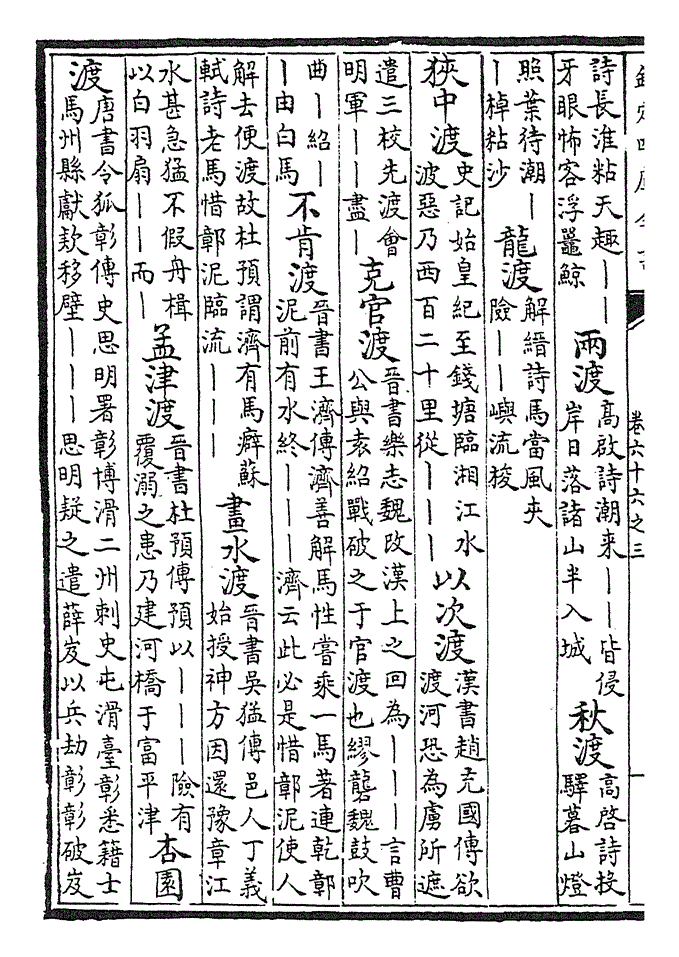 欽定四庫全書
卷六十六之三
一
詩長淮粘天趣丨丨
牙眼怖客浮鼉鯨
兩渡
高啟詩潮来丨丨皆侵
岸日落諸山半入城
秋渡
高啓詩投
驛暮山燈
照葉待潮丨
丨棹粘沙
龍渡
解縉詩馬當風夾
險丨丨嶼流梭
狹中渡
史記始皇紀至錢塘臨湘江水
波惡乃西百二十里從丨丨丨
以次渡
漢書趙充國傳欲
渡河恐為虜所遮
遣三校先渡會
明軍丨丨盡丨
克官渡
晉書樂志魏改漢上之回為丨丨丨言曹
公與袁紹戰破之于官渡也繆襲魏鼓吹
曲丨紹丨
丨由白馬
不肯渡
晉書王濟傳濟善解馬性嘗乘一馬著連乾鄣
泥前有水終丨丨丨濟云此必是惜鄣泥使人
解去便渡故杜預謂濟有馬癖蘇
軾詩老馬惜鄣泥臨流丨丨丨
畫水渡
晉書吳猛傳邑人丁義
始授神方因還豫章江
水甚急猛不假舟楫
以白羽扇丨丨而丨
孟津渡
晉書杜預傳預以丨丨丨險有
覆溺之患乃建河橋于富平津
杏園
渡
唐書令狐彰傳史思明署彰博滑二州刺史屯滑臺彰悉籍士
馬州縣獻欵移壁丨丨丨思明疑之遣薛岌以兵劫彰彰破岌